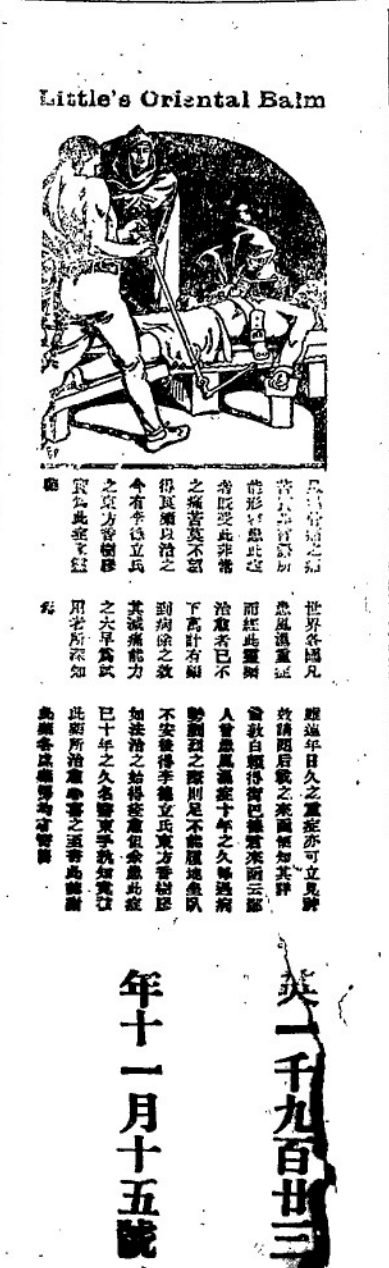 Little's Oriental Balm
能形容患此症
者既受此非常
之痛苦莫不望
得良藥以治之
今有李德立氏
之東方香樹膠
世界各國凡
患風濕重症
而經此靈藥
治愈者已不
下萬計有藥
到病除之效
其減痛能力
之大早為試
用者所深知
雖遠年日久之重症亦可立見神
效請閱后載之來函便知其詳
倫敦白賴得街巴德君來函云鄙
人曾患風濕症十年之久每遇病
勢劇烈之際則足不能履地坐臥
不安後得李德立氏東方香樹膠
如法治之始得痊愈但余患此症
已十年之久名醫束手孰知竟被
此藥所治愈幸喜之至書此鳴謝
此藥各處藥房均有寄售
英一千九百廿三
年十一月十五號